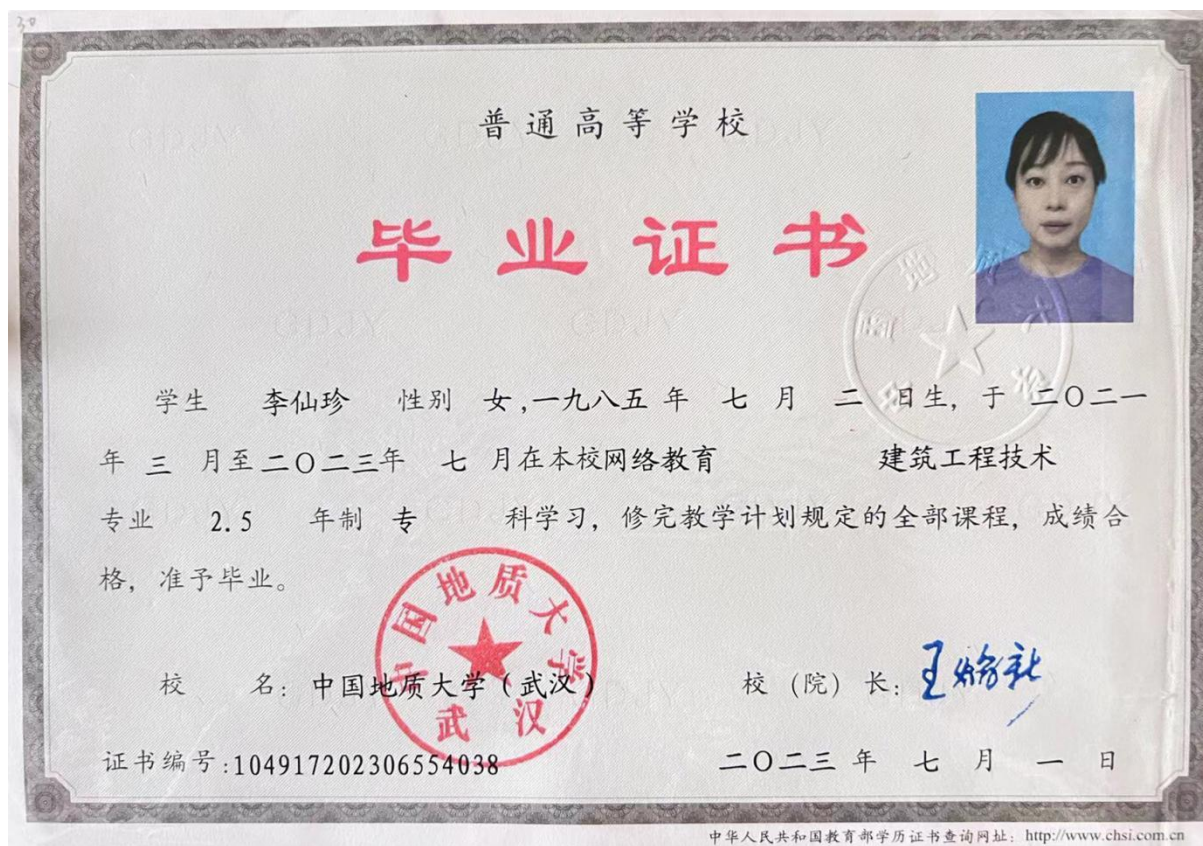 普通高等学校
毕业证书
学生 李仙珍 性别 女,一九八五 年 七 月 二 日生, 于 二〇二一
年 三 月至二〇二三年 七 月在本校网络教育 建筑工程技术
专业 2.5 年制 专 科学习, 修完教学计划规定的全部课程, 成绩合
格, 准予毕业。
中国地质大学
武汉
校 名: 中国地质大学(武汉) 校(院)长:
证书编号:104917202306554038 二〇二三 年 七 月 一 日
中华人民共和国教育部学历证书查询网址: http://www.chsi.com.cn